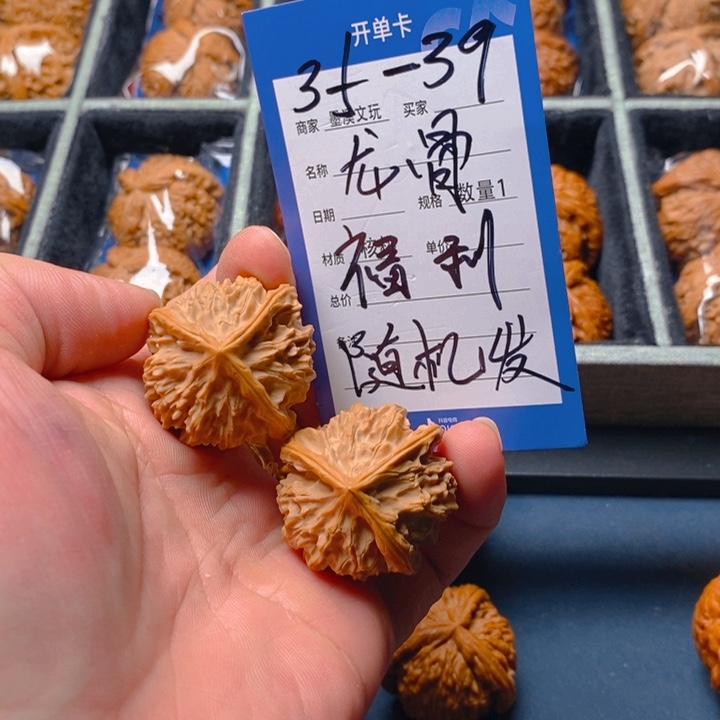 开单卡
35-39
商家 墨漠文玩 买家
名称 龙骨
日期 规格 数量1
材质 核桃 单价
福利
总价
备注
随机发
抖音电商